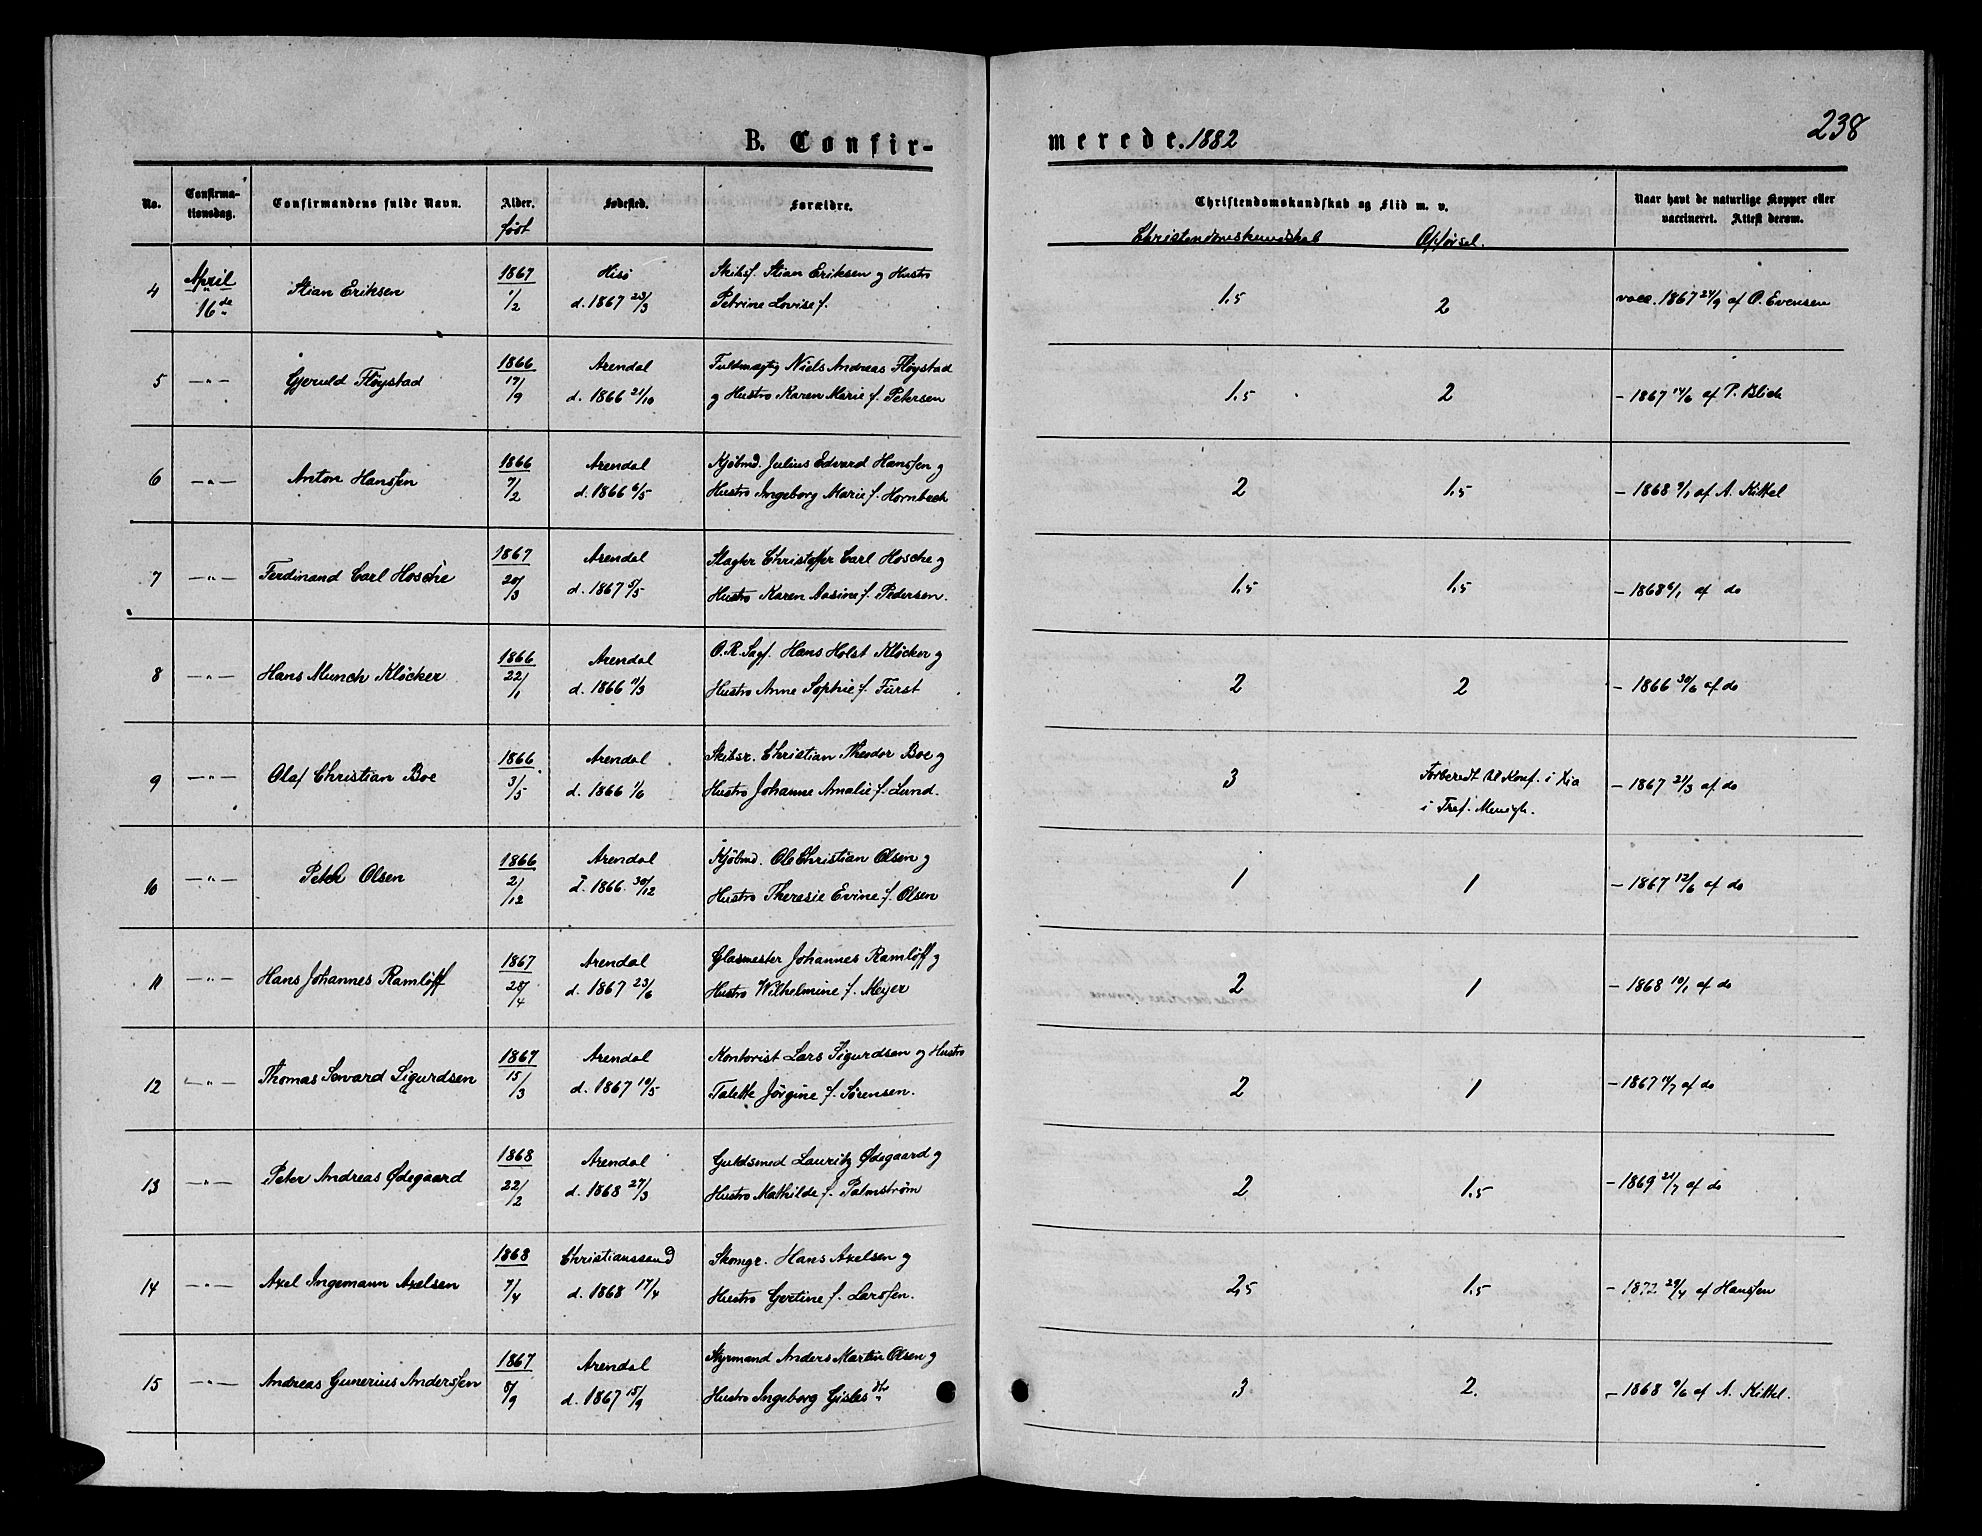 238
B. Confir-
merede. 1882
No.
Confirma-
tionsdag.
Confirmandens fulde Navn.
Alder.
født
Fødested.
Forældre.
Christendomskundskab og Flid m. v.
Christendomskundskab Opførsel.
Naar havt de naturlige Kopper eller
vaccineret. Attest derom.
4 April 16de Stian Eriksen 1867 1/2 Hisö Skibsf. Stian Eriksen og Hustru 1,5 2 vacc. 1867 24/9 af O. Evensen
d. 1867 23/3 Petrine Lovise f.
5 —"— Gjeruld Fløystad 1866 17/9 Arendal Fuldmægtig Niels Andreas Fløystad 1,5 2 – 1867 14/6 af P. Blich
d. 1866 21/10 og Hustro Karen Marie f. Petersen
6 —"— Anton Hanssen 1866 7/2 Arendal Kjøbmd. Julius Edvard Hanssen og 2 1,5 – 1868 9/1 af A. Kittel
d. 1866 6/5 Hustro Ingeborg Marie f. Hornbech
7 —"— Ferdinand Carl Hosche 1867 20/3 Arendal Slagter Christoffer Carl Hosche og 1,5 1,5 – 1868 6/1 af do
d. 1867 5/5 Hustro Karen Aasine f. Pedersen.
8 —"— Hans Munch Kløcker 1866 22/1 Arendal O.R.Sagf. Hans Holst Kløcker og 2 2 – 1866 30/6 af do
d. 1866 11/3 Hustro Anne Sophie f. Fürst
9 —"— Olaf Christian Boe 1866 3/5 Arendal Skibsr. Christian Theodor Boe og 3 Forberedt til Konf. i
d. 1866 1/6 Hustro Johanne Amalie f. Lund. i Tref. Menigh. – 1867 21/3 af do
10 —"— Olsen 1866 2/12 Arendal Kjøbmd. Ole Christian Olsen og 1 1 – 1867 12/6 af do
d. 1866. 30/12 Hustro Theresie Evine f. Olsen
11 —"— Hans Johannes Ramløff 1867 28/4 Arendal Glasmester Johannes Ramløff og 2 1 – 1868 10/1 af do
d. 1867 23/6 Hustro Wilhelmine f. Meyer
12 —"— Thomas Seward Sigurdsen 1867 15/3 Arendal Kontorist Lars Sigurdsen og Hustro 2 1 – 1867 af do
d. 1867 19/5 Talette Jörgine f. Sörensen.
13 —"— Peter Andreas Ødegaard 1868 22/2 Arendal Guldsmed Lauritz Ødegaard og 2 1.5 – 1869 21/7 af do
d. 1868 27/3 Hustro Mathilde f. Palmström
14 —"— Axel Ingemann Axelsen 1868 7/4 Christianssand Skomgr. Hans Axelsen og 2,5 1.5 – 1872 29/4 af Hanssen
d. 1868 17/4 Hustro Gertine f. Larssen.
15 —"— Andreas Gunerius Anderssen 1867 8/9 Arendal Styrmand Anders Martin Olsen og 3 2. – 1868 9/6 af A. Kittel.
d. 1867 15/9 Hustro Ingeborg Gislesdtr